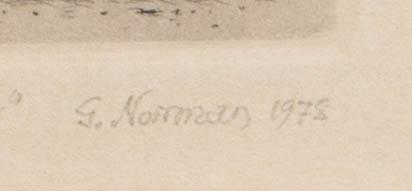 " G. Norman 1978